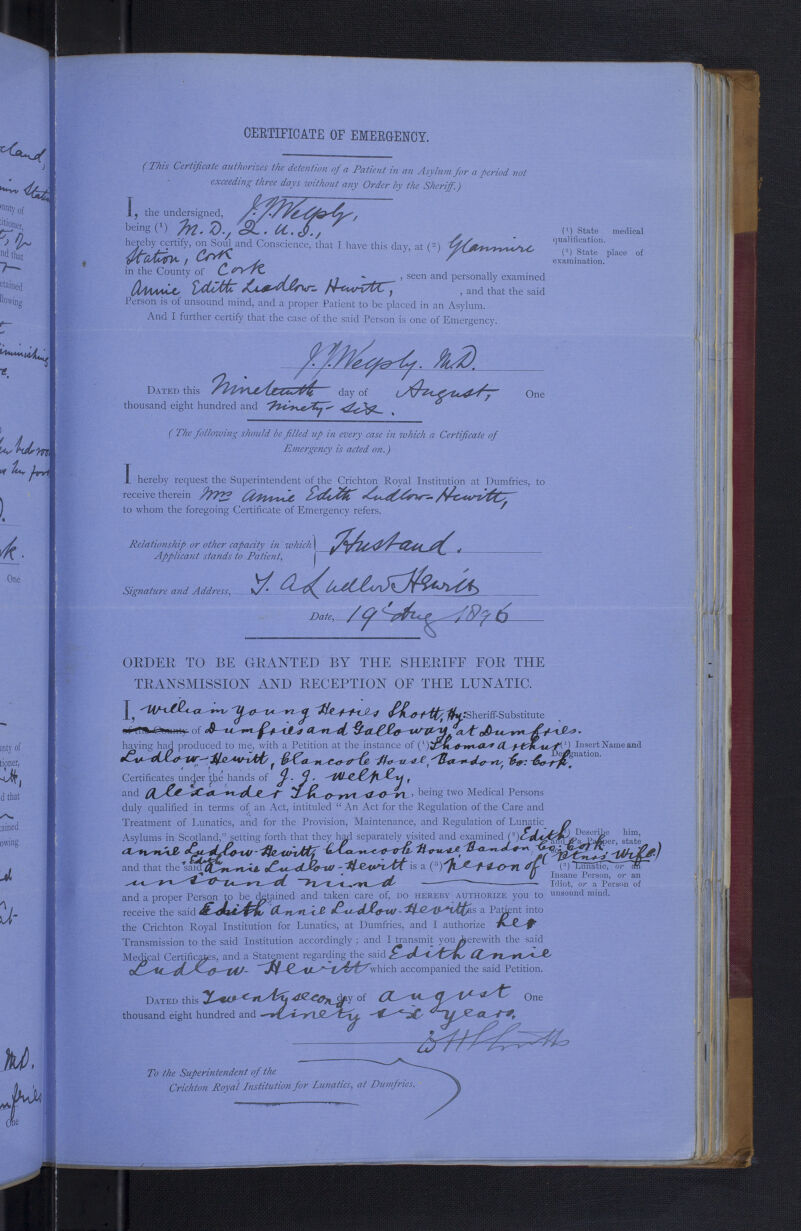 CERTIFICATE OF EMERGENCY.
(This Certificate authorizes the detention of a Patient in an Asylum for a period not
exceeding three days without any Order by the Sheriff.)
I, the undersigned, J. J. Welply,
being (¹) M.D., Q.U.I.,
hereby certify, on Soul and Conscience, that I have this day, at (²) Glanmire
Station, Cork
in the County of Cork
, seen and personally examined
Annie Edith Ludlow-Hewitt, , and that the said
Person is of unsound mind, and a proper Patient to be placed in an Asylum.
And I further certify that the case of the said Person is one of Emergency.
(¹) State medical
qualification.
(²) State place of
examination.
J. J. Welply. M.D.
DATED this Nineteenth day of August, One
thousand eight hundred and ninety-six.
(The following should be filled up in every case in which a Certificate of
Emergency is acted on.)
I hereby request the Superintendent of the Crichton Royal Institution at Dumfries, to
receive therein Mrs Annie Edith Ludlow-Hewitt,
to whom the foregoing Certificate of Emergency refers.
Relationship or other capacity in which
Applicant stands to Patient, Husband.
Signature and Address, T. A Ludlow Hewitt
Date, 19 Aug 1896
ORDER TO BE GRANTED BY THE SHERIFF FOR THE
TRANSMISSION AND RECEPTION OF THE LUNATIC.
I, William Young Herries Shortt, Hy: Sheriff-Substitute
of the County of Dumfries and Galloway at Dumfries.
having had produced to me, with a Petition at the instance of (¹) Thomas Arthur
Ludlow-Hewitt, Clancoole House, Bandon, Co: Cork.
Certificates under the hands of J. J. Welply,
and Alexander Thomson, being two Medical Persons
duly qualified in terms of an Act, intituled "An Act for the Regulation of the Care and
Treatment of Lunatics, and for the Provision, Maintenance, and Regulation of Lunatic
Asylums in Scotland," setting forth that they had separately visited and examined (²) Edith
Annie Ludlow-Hewitt, Clancoole House Bandon Co: Cork
(Petnrs Wife)
and that the said Edith Annie Ludlow-Hewitt is a (³) person of
unsound mind
and a proper Person to be detained and taken care of, DO HEREBY AUTHORIZE you to
receive the said Edith Annie Ludlow-Hewitt as a Patient into
the Crichton Royal Institution for Lunatics, at Dumfries, and I authorize her
Transmission to the said Institution accordingly; and I transmit you herewith the said
Medical Certificates, and a Statement regarding the said Edith Annie
Ludlow-Hewitt which accompanied the said Petition.
(¹) Insert Name and
Designation.
(²) Describe him,
and if a Pauper, state
(³) Lunatic, or an
Insane Person, or an
Idiot, or a Person of
unsound mind.
DATED this Twenty second day of August One
thousand eight hundred and ninety six years.
To the Superintendent of the
Crichton Royal Institution for Lunatics, at Dumfries.